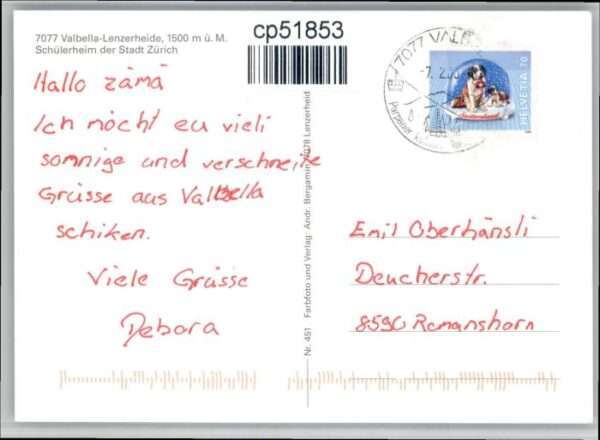 cp51853
7077 Valbella-Lenzerheide, 1500 m ü. M.
Schülerheim der Stadt Zürich
Hallo zämä
Ich möcht eu vieli
sonnige und verschneite
Grüsse aus Valbella
schiken.
Viele Grüsse
Debora
Nr. 451 Farbfoto und Verlag: Andr. Bergamin, 7078 Lenzerheid
7077 VALB
-7. 2.
HELVETIA 70
Emil Oberhänsli
Deucherstr.
8590 Romanshorn